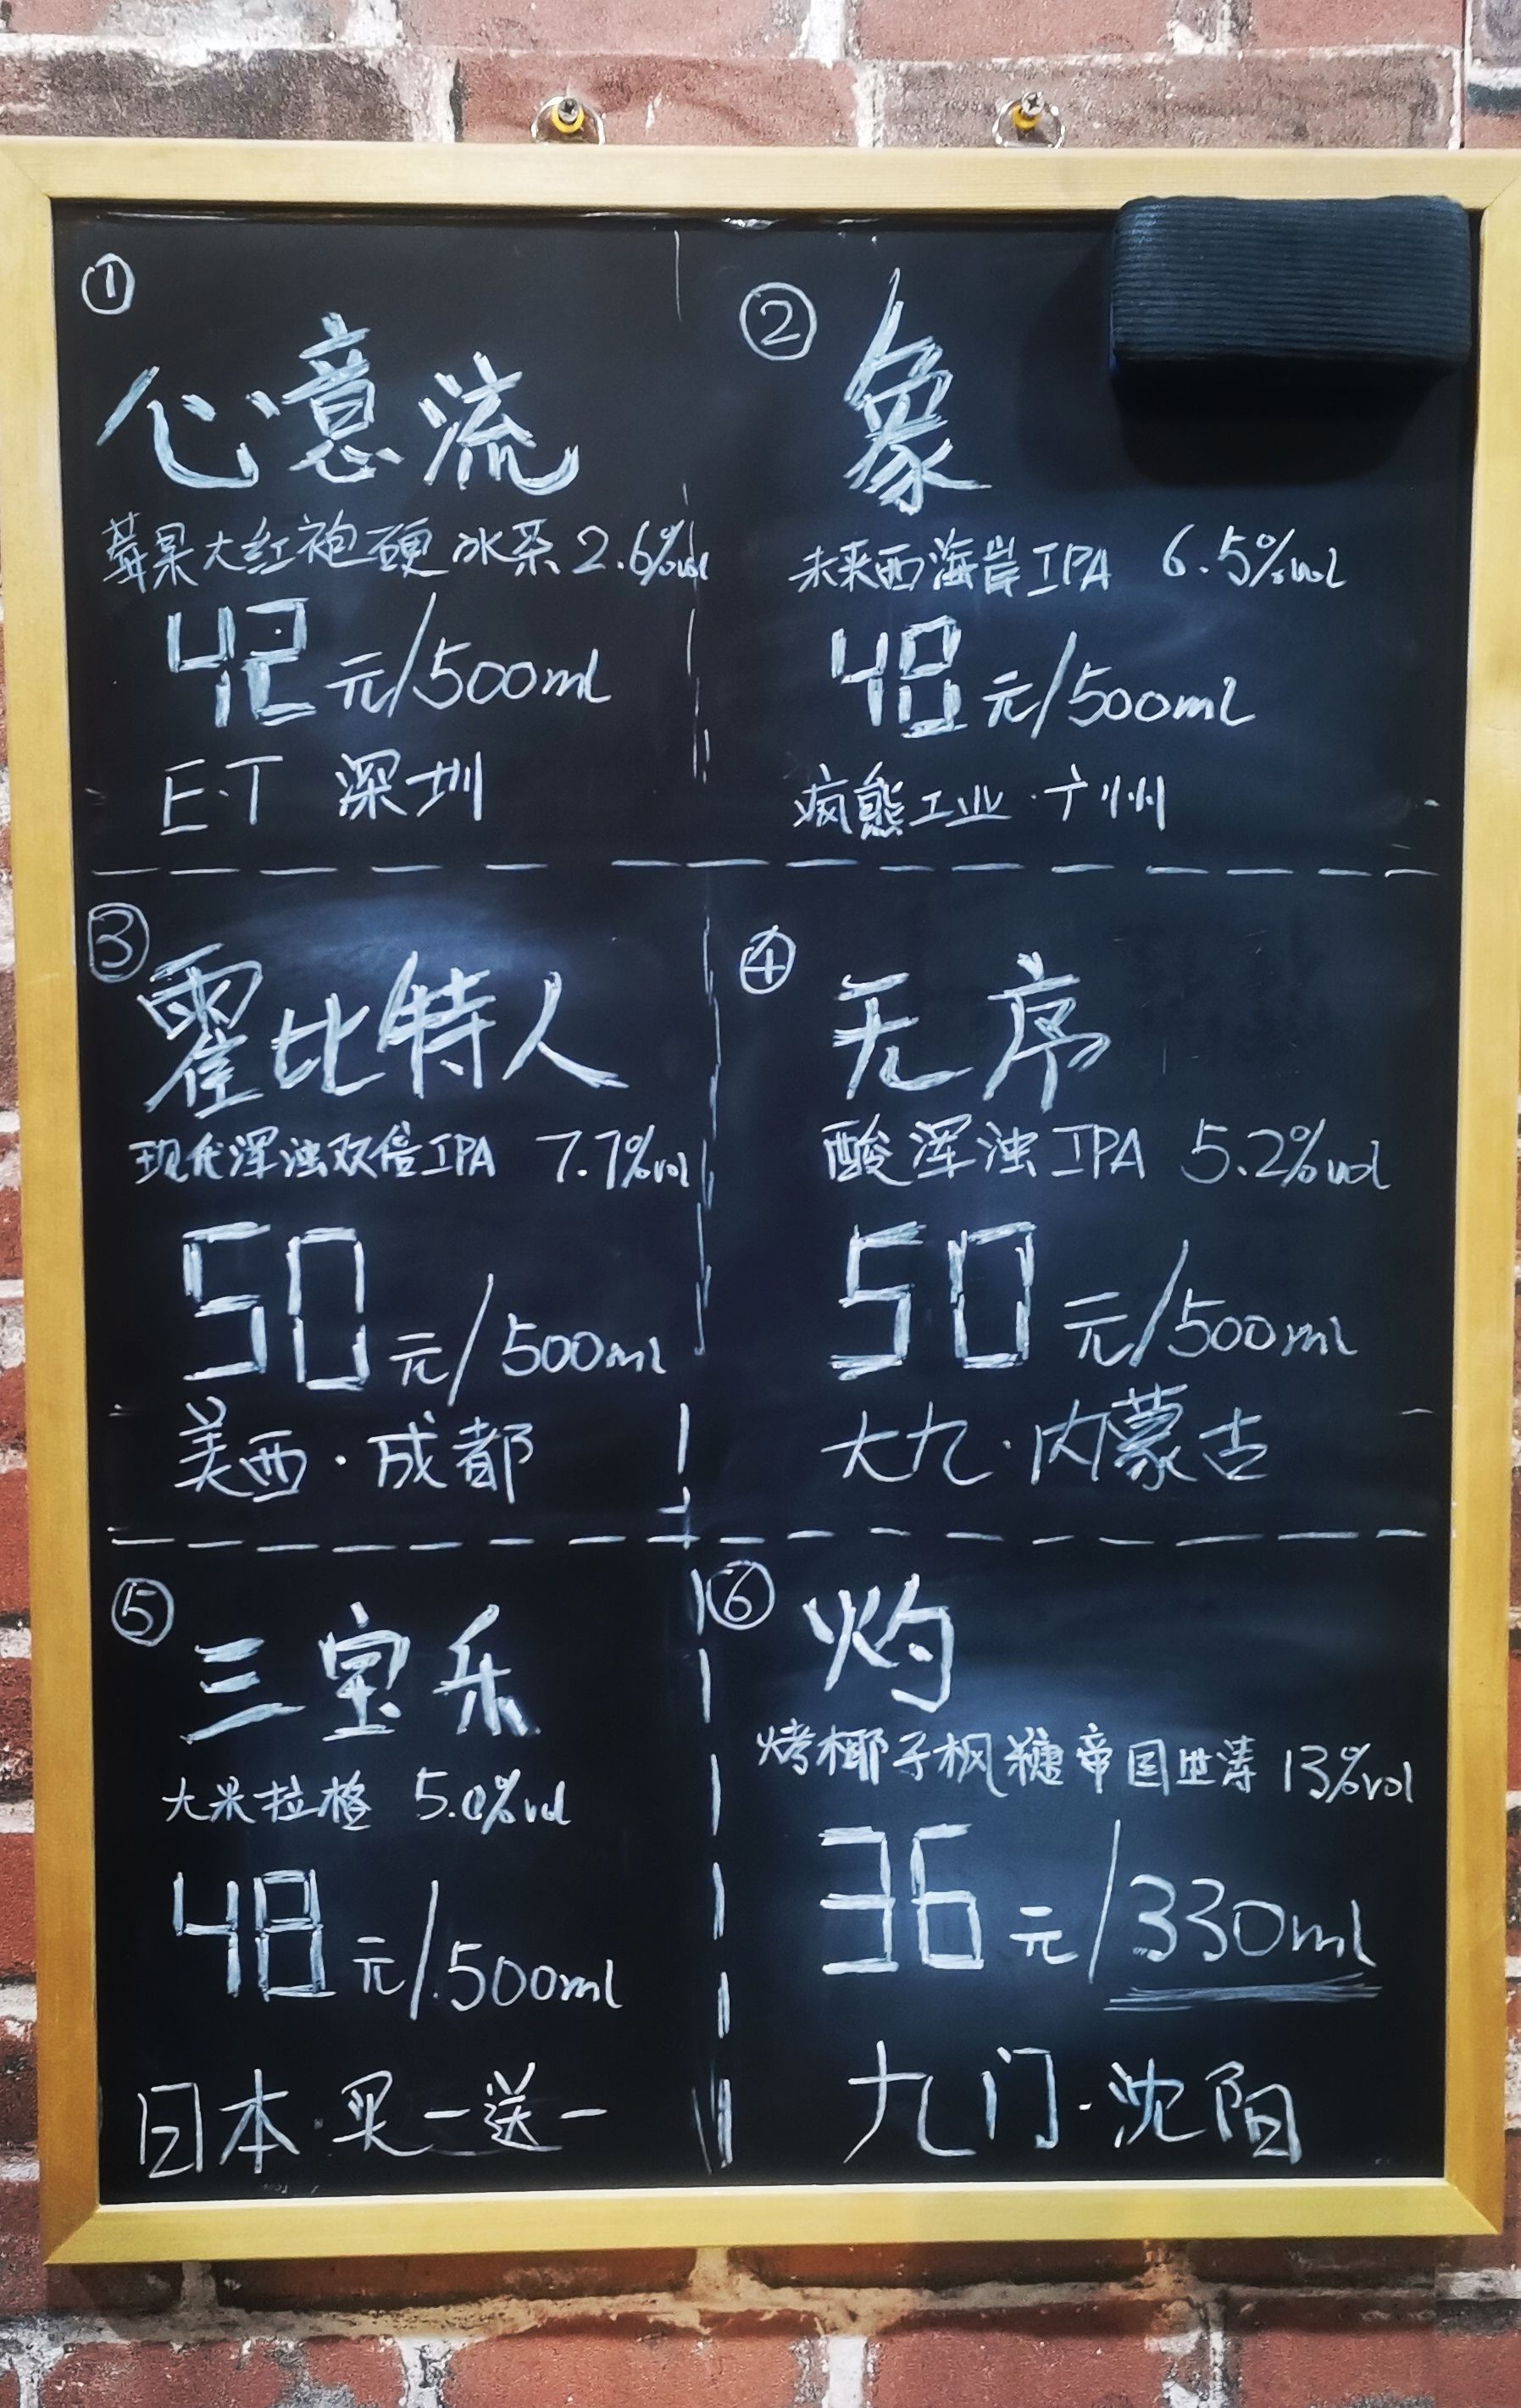 ①
心意流
莓果大红袍硬冰茶 2.6%vol
42元/500ml
E·T 深圳
②
象
未来西海岸IPA 6.5%vol
48元/500ml
疯熊工业·广州
③
霍比特人
现代浑浊双倍IPA 7.7%vol
50元/500ml
美西·成都
④
无序
酸浑浊IPA 5.2%vol
50元/500ml
大九·内蒙古
⑤
三宝乐
大米拉格 5.0%vol
48元/500ml
日本·买一送一
⑥
灼
烤椰子枫糖帝国世涛 13%vol
36元/330ml
九门·沈阳